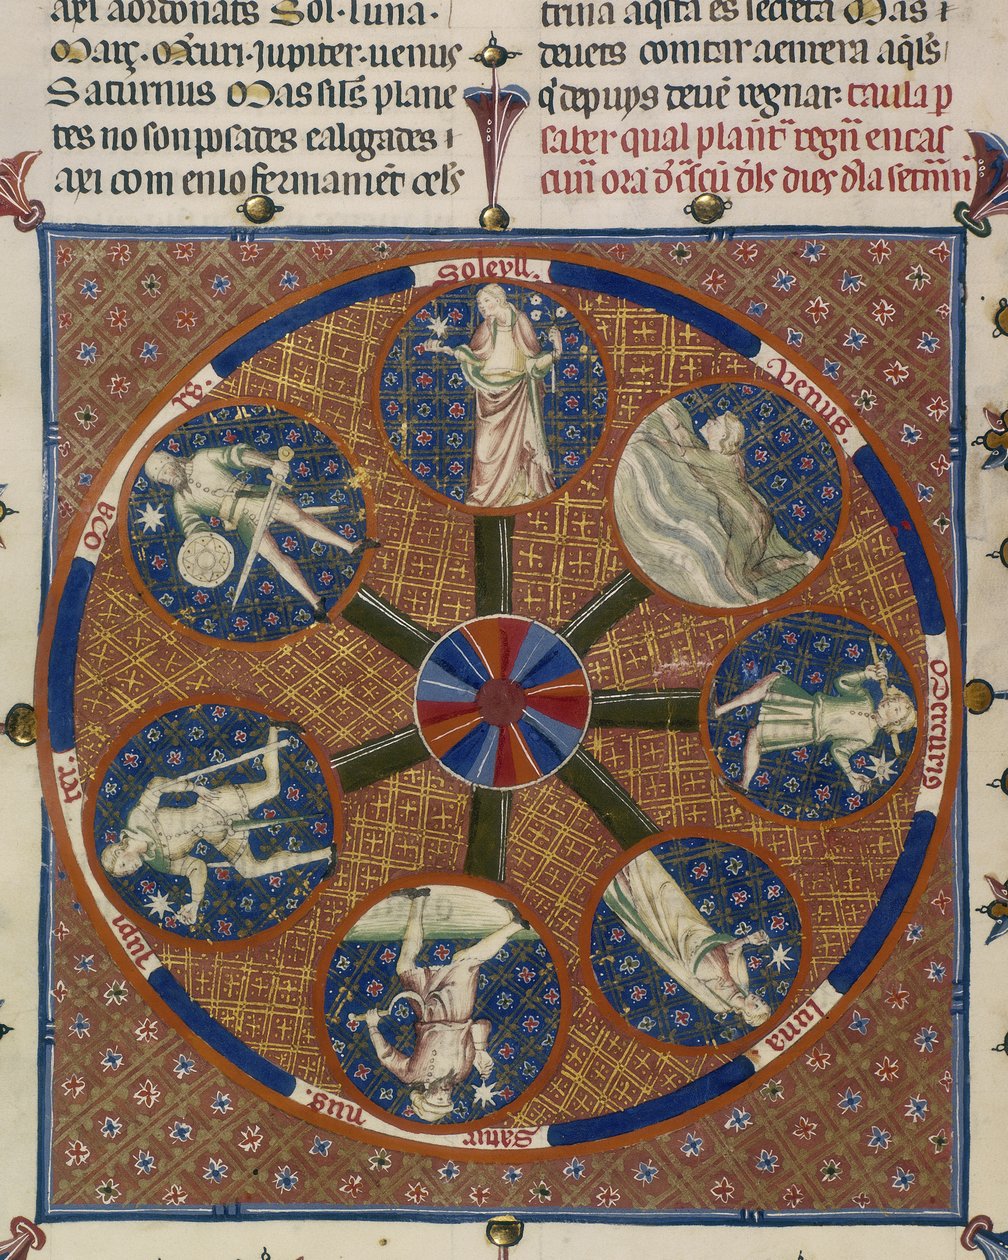 axi aordonats Sol·luna·
Març·Mercuri·Jupiter·uenus
Saturnus Mas sils plane
tes no son pusades ealogades
axi com en lo fermament cels
trina aq̄sta es secreta Mas
deuets comtar aentera aq̄ls
q̄ depuys deue regnar: taula p
saber qual regn̄ en cas
cun ora dels dies dla setm
Soleyll.
Venus.
Mercurio
luna
Satur nus.
Jupi
Març